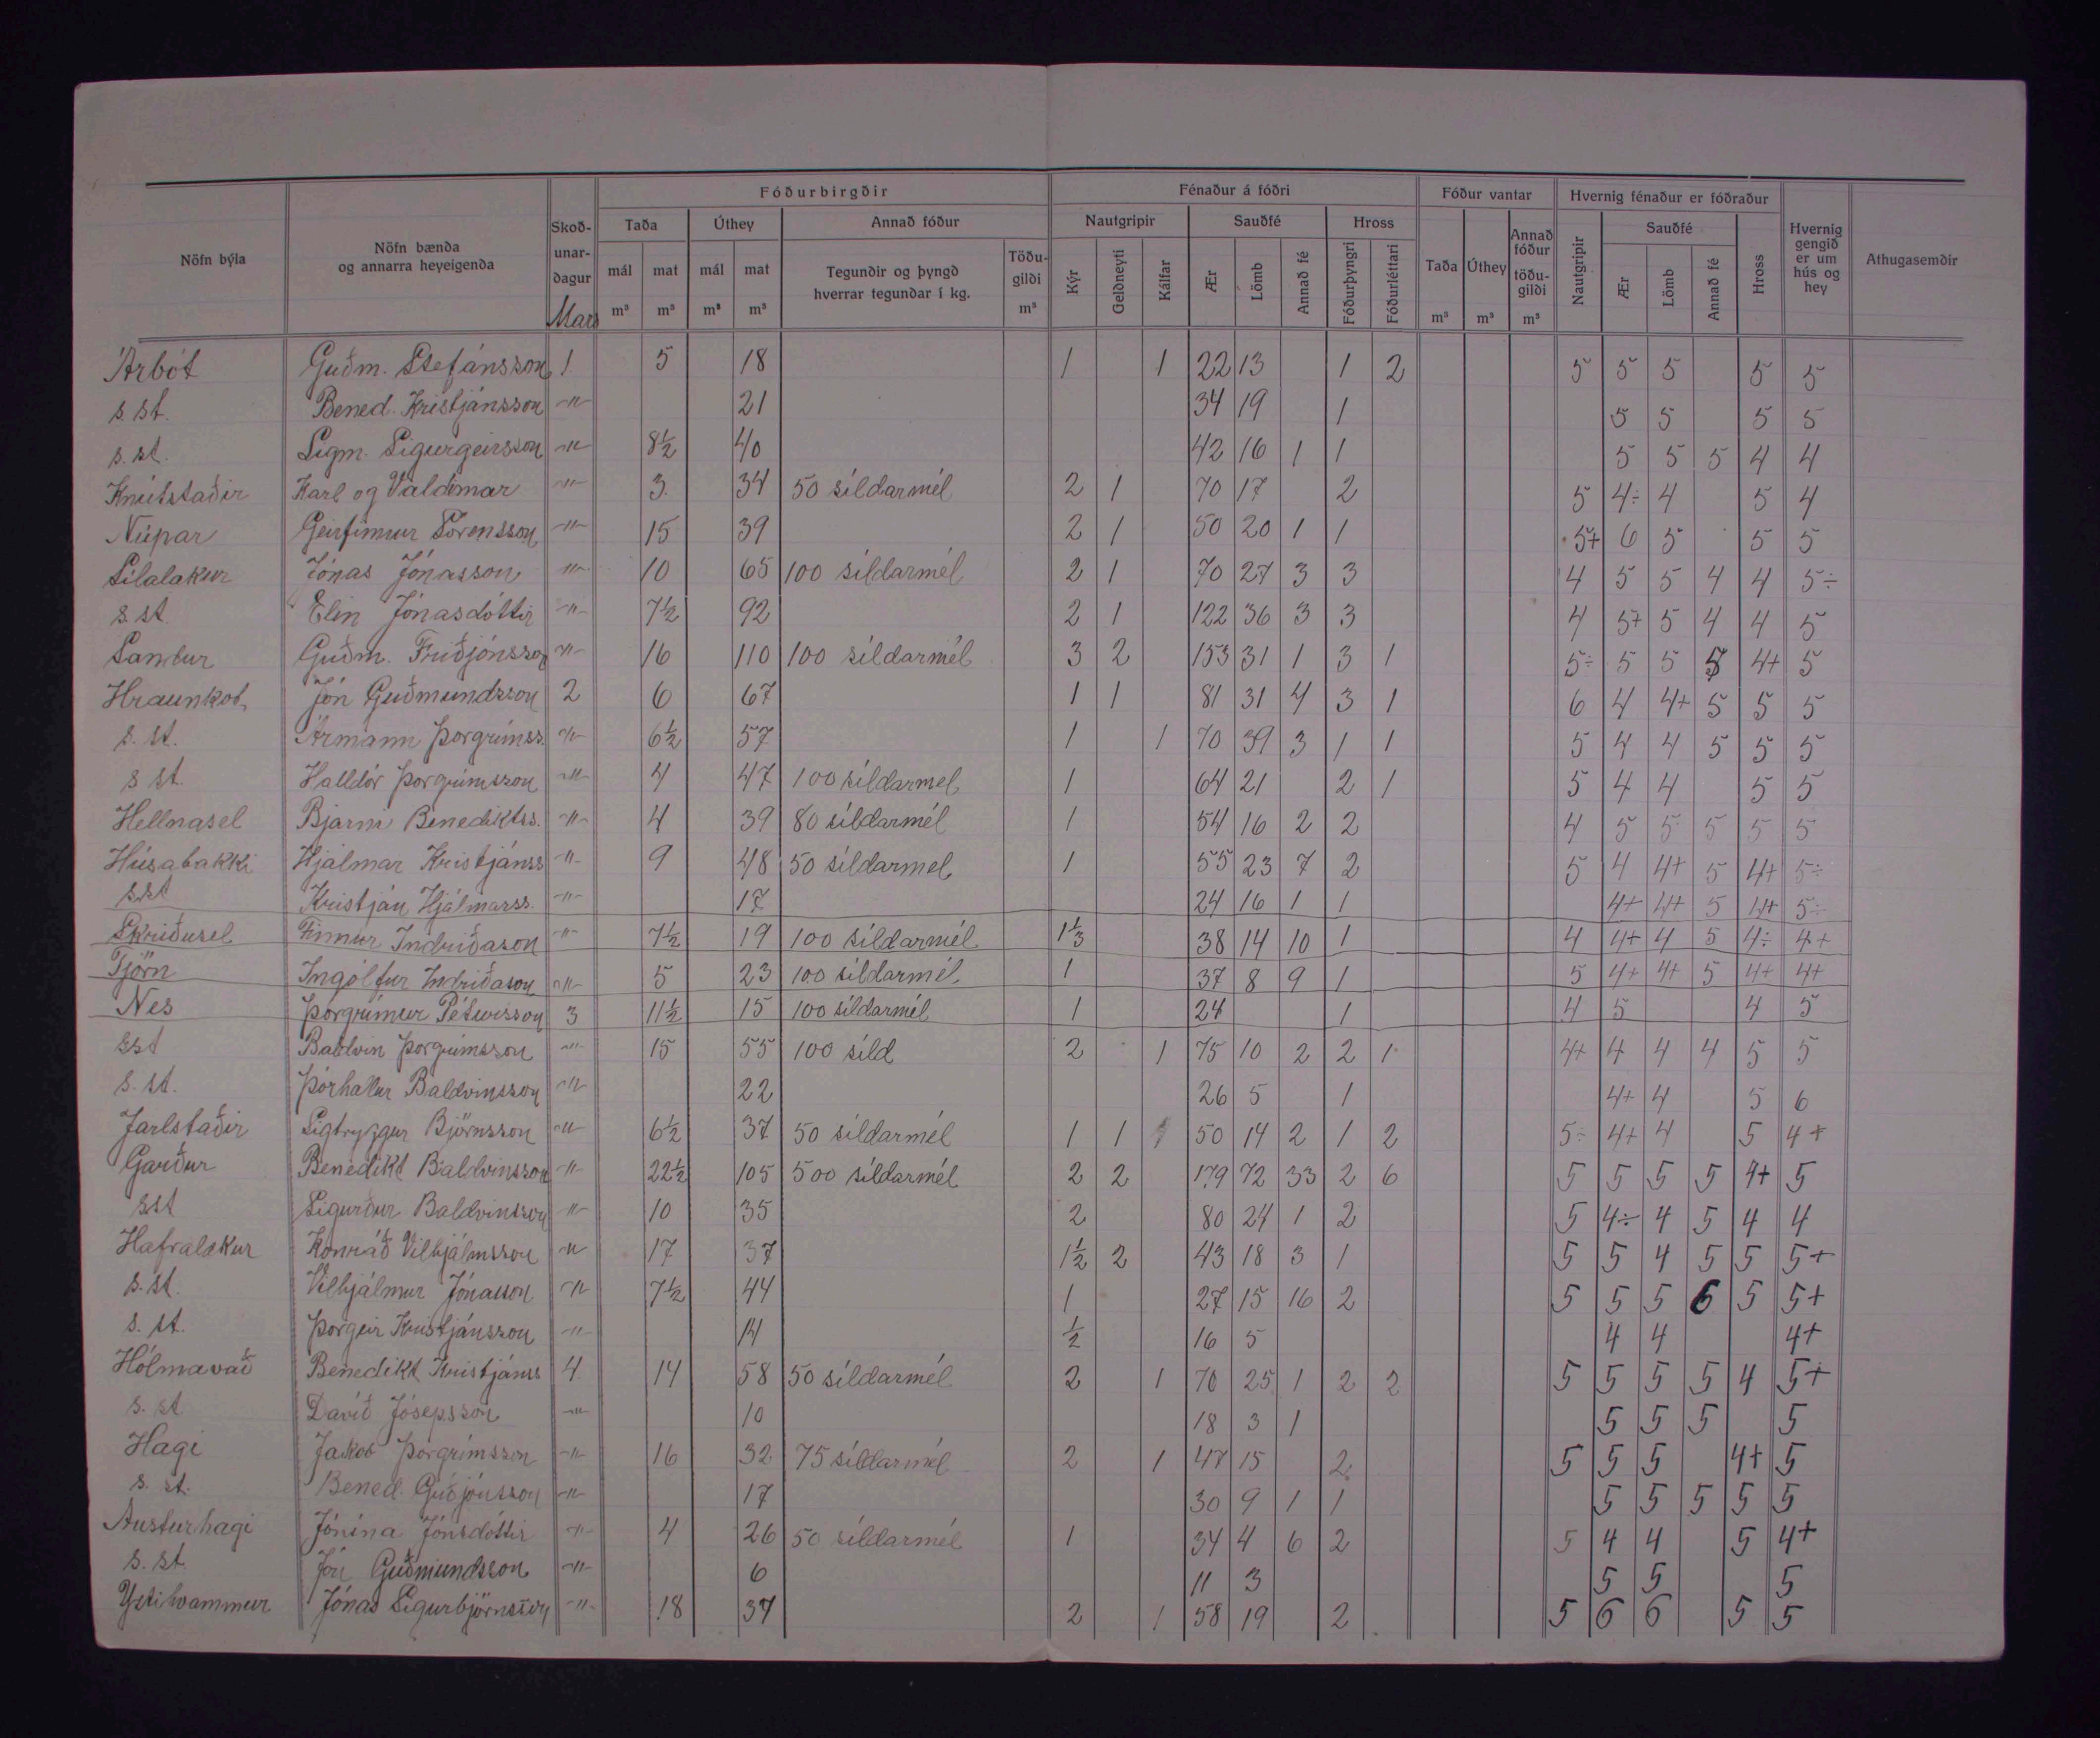 Nöfn býla | Nöfn bænda og annarra heyeigenda | Skoðunardagur Mars | Fóðurbirgðir | Fénaður á fóðri | Fóður vantar | Hvernig fénaður er fóðraður | Hvernig gengið er um hús og hey | Athugasemdir
Taða | Úthey | Annað fóður | Nautgripir | Sauðfé | Hross | Taða m³ | Úthey m³ | Annað fóður töðugildi m³ | Nautgripir | Sauðfé | Hross
mál m³ | mat m³ | mál m³ | mat m³ | Tegundir og þyngd hverrar tegundar í kg. | Töðugildi m³ | Kýr | Geldneyti | Kálfar | Ær | Lömb | Annað fé | Fóðurþyngri | Fóðurléttari | Ær | Lömb | Annað fé
Árbót Guðm. Stefánsson 1 5 18 1 1 22 13 1 2 5 5 5 5 5
s. st. Bened. Kristjánsson -"- 21 34 19 1 5 5 5 5
s. st. Sigm. Sigurgeirsson -"- 8½ 40 42 16 1 1 5 5 5 4 4
Knútstaðir Karl og Valdimar -"- 3 34 50 síldarmél 2 1 70 17 2 5 4÷ 4 5 4
Núpar Geirfinnur Sörensson -"- 15 39 2 1 50 20 1 1 5+ 6 5 5 5
Sílalækur Jónas Jónasson -"- 10 65 100 síldarmél 2 1 70 27 3 3 4 5 5 4 4 5÷
s st. Elín Jónasdóttir -"- 7½ 92 2 1 122 36 3 3 4 5+ 5 4 4 5
Sandur Guðm. Friðjónsson -"- 16 110 100 síldarmél 3 2 153 31 1 3 1 5÷ 5 5 5 4+ 5
Hraunkot Jón Guðmundsson 2 6 67 1 1 81 31 4 3 1 6 4 4+ 5 5 5
s. st. Ármann Þorgrímss. -"- 6½ 57 1 1 70 39 3 1 1 5 4 4 5 5 5
s st. Halldór Þorgrímsson -"- 4 47 100 síldarmel 1 64 21 2 1 5 4 4 5 5
Hellnasel Bjarni Benediktss. -"- 4 39 80 síldarmél 1 54 16 2 2 4 5 5 5 5 5
Húsabakki Hjálmar Kristjánss -"- 9 48 50 síldarmel 1 55 23 7 2 5 4 4+ 5 4+ 5÷
sst Kristján Hjálmarss. -"- 17 24 16 1 1 4+ 4+ 5 4+ 5÷
Skriðusel Finnur Indriðason -"- 7½ 19 100 síldarmél 1⅓ 38 14 10 1 4 4+ 4 5 4÷ 4+
Tjörn Ingólfur Indriðason -"- 5 23 100 síldarmél 1 37 8 9 1 5 4+ 4+ 5 4+ 4+
Nes Þorgrímur Pétursson 3 11½ 15 100 síldarmél 1 24 1 4 5 4 5
sst Baldvin Þorgrímsson -"- 15 55 100 síld 2 1 75 10 2 2 1 4+ 4 4 4 5 5
s. st. Þórhallur Baldvinsson -"- 22 26 5 1 4+ 4 5 6
Jarlstaðir Sigtryggur Björnsson -"- 6½ 37 50 síldarmél 1 1 1 50 14 2 1 2 5÷ 4+ 4 5 4+
Garður Benedikt Baldvinsson -"- 22½ 105 500 síldarmél 2 2 179 72 33 2 6 5 5 5 5 4+ 5
sst Sigurður Baldvinsson -"- 10 35 2 80 24 1 2 5 4÷ 4 5 4 4
Hafralækur Konráð Vilhjálmsson -"- 17 37 1½ 2 43 18 3 1 5 5 4 5 5 5+
s. st. Vilhjálmur Jónasson -"- 7½ 44 1 27 15 16 2 5 5 5 6 5 5+
s. st. Þorgeir Kristjánsson -"- 14 ½ 16 5 4 4 4+
Hólmavað Benedikt Kristjánss 4 14 58 50 síldarmél 2 1 70 25 1 2 2 5 5 5 5 4 5+
s. st Davíð Jósepsson -"- 10 18 3 1 5 5 5 5
Hagi Jakob Þorgrímsson -"- 16 32 75 síldarmél 2 1 47 15 2 5 5 5 4+ 5
s. st. Bened. Guðjónsson -"- 17 30 9 1 1 5 5 5 5 5
Austurhagi Jónína Jónsdóttir -"- 4 26 50 síldarmél 1 34 4 6 2 5 4 4 5 4+
s. st. Jón Guðmundsson -"- 6 11 3 5 5 5
Ystihvammur Jónas Sigurbjörnsson -"- 18 37 2 1 58 19 2 5 6 6 5 5